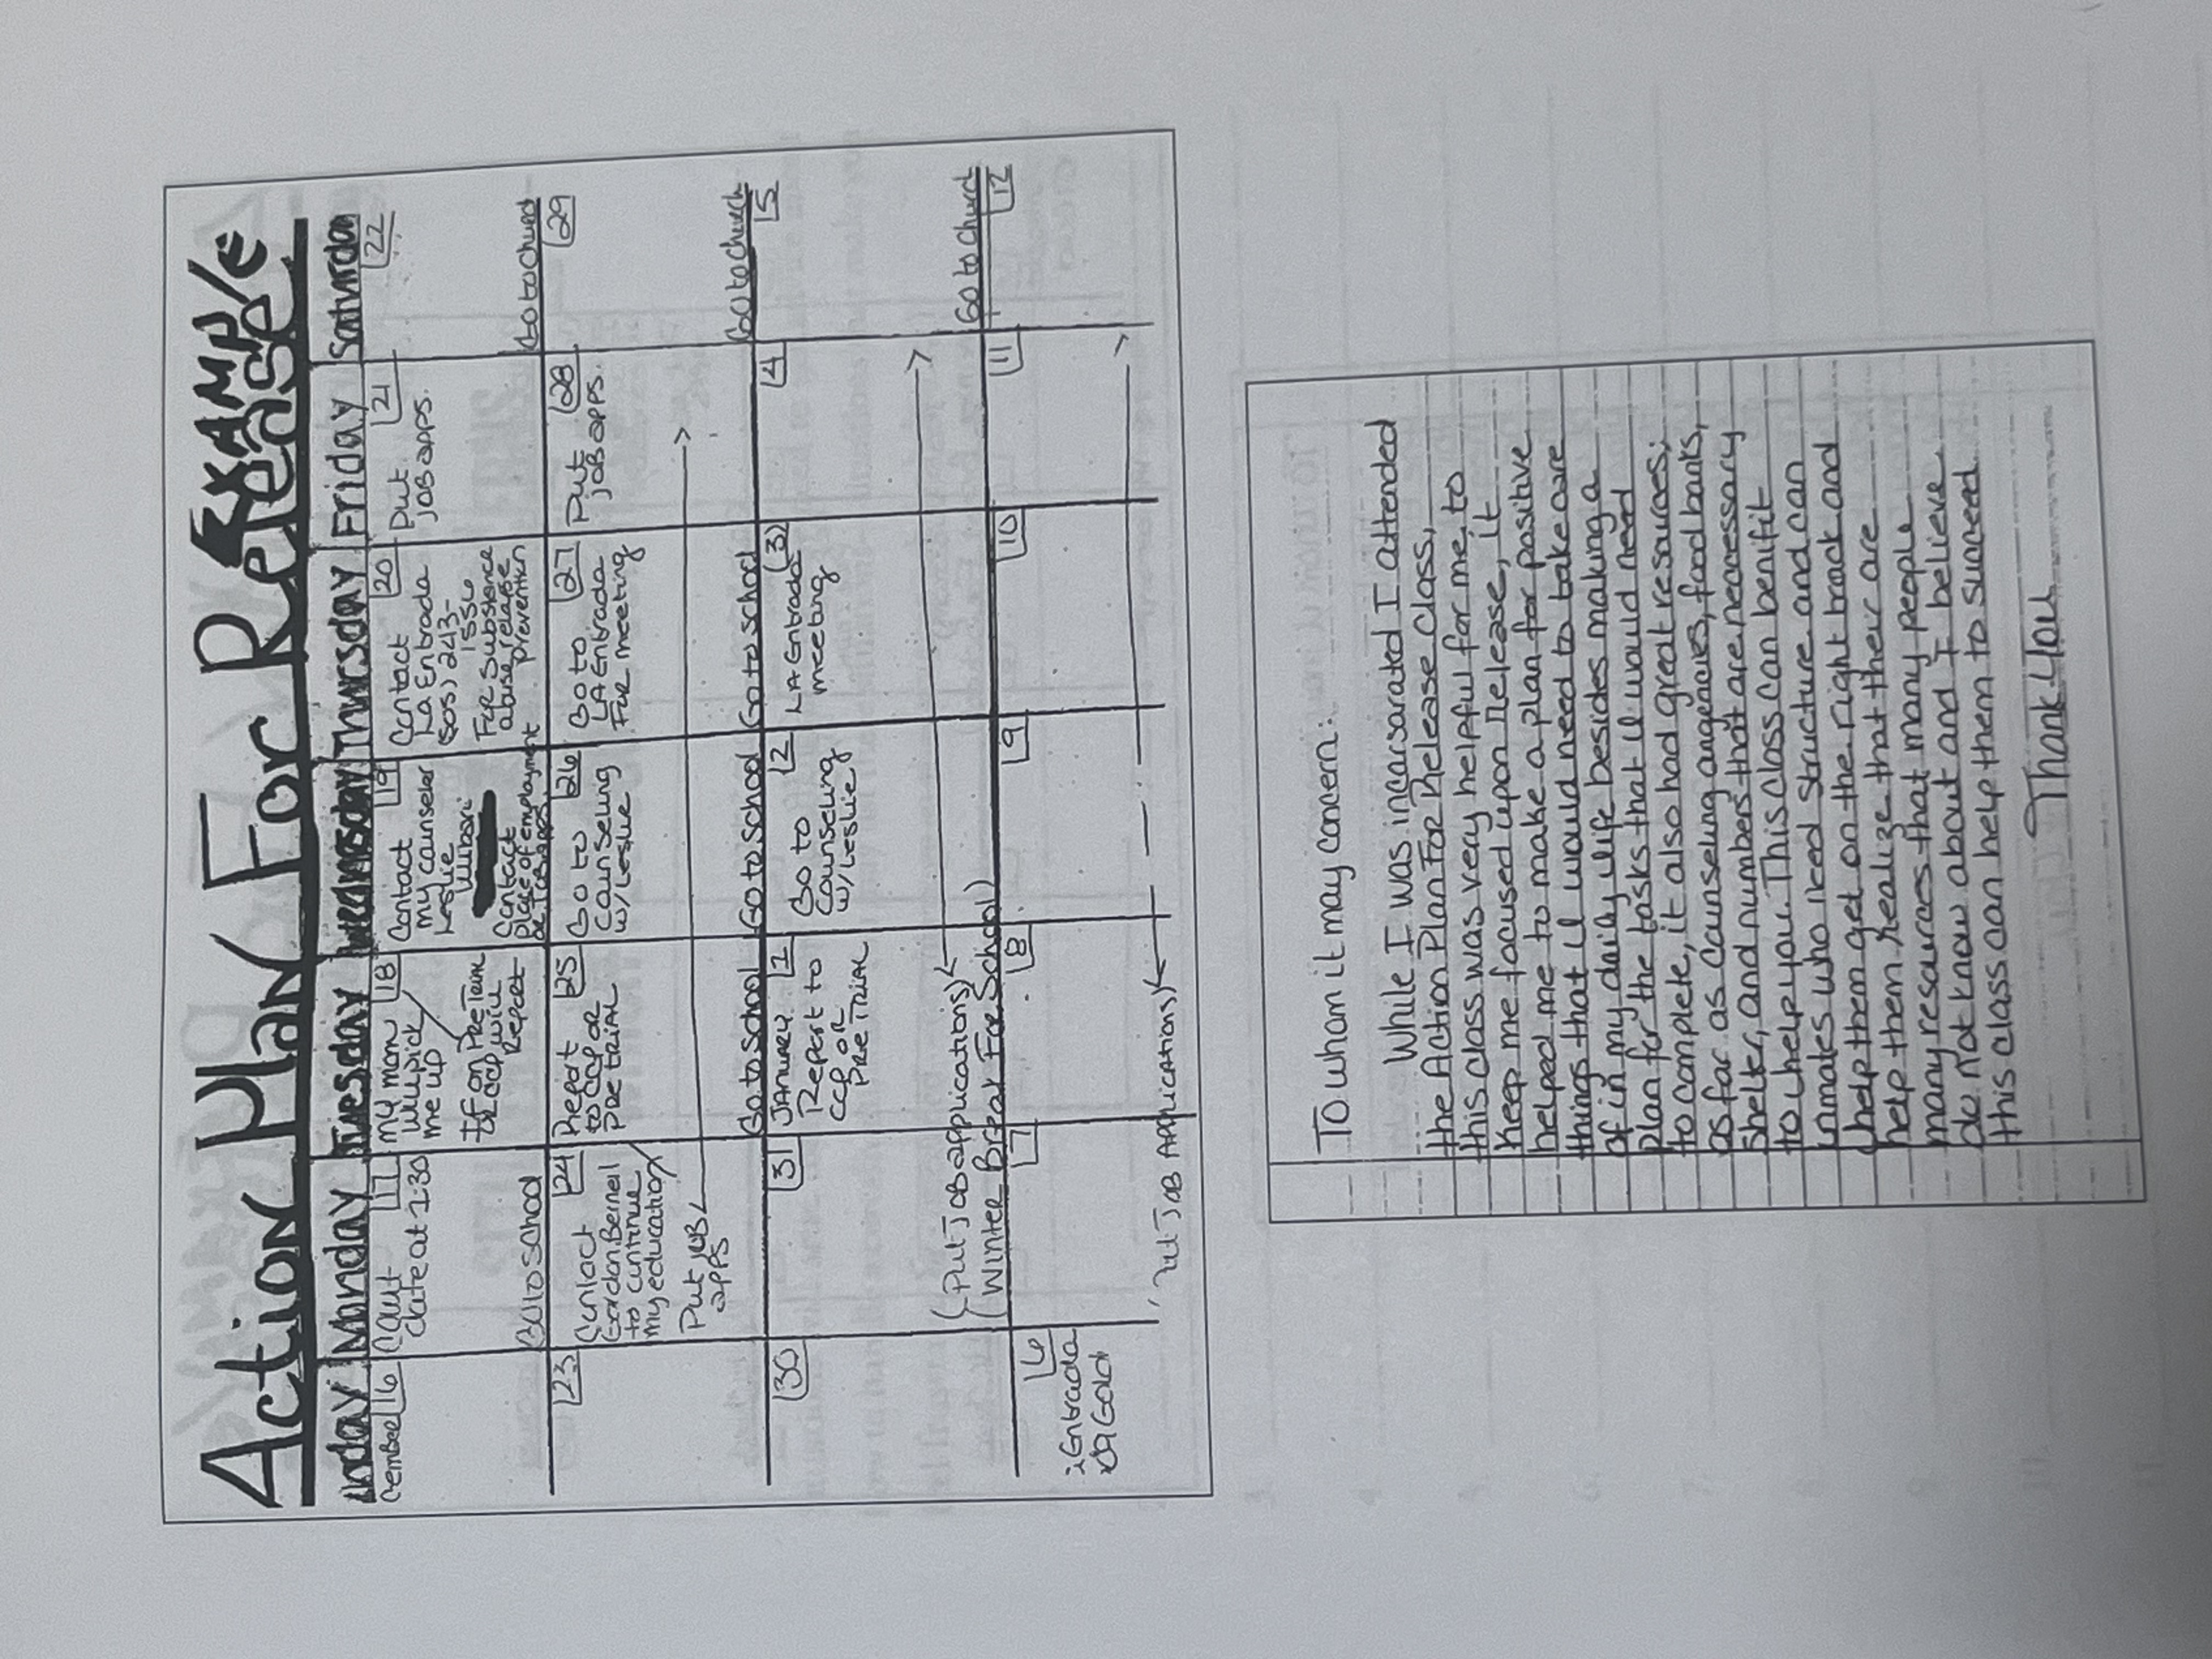 Action Plan For Release
EXAMPLE
unday Monday Tuesday Wednesday Thursday Friday Saturday
cember 16
17
Court
date at 1:30
Go to School
18
My mom
will pick
me up
If on PreTrial
or CCP will
Report
19
Contact
my counselor
Leslie
Contact
place of employment
or Job apps.
20
Contact
La Entrada
(505) 243-
1556
For Substance
abuse relapse
Prevention
21
Put
job apps.
22
Go to Church
23
24
Contact
Gordon Bernell
to continue
my education
Put job
apps
25
Report
to CCP or
Pre Trial
Go to School
26
Go to
Counseling
w/ Leslie
Go to School
27
Go to
LA Entrada
For meeting
Go to School
28
Put
job apps.
29
Go to Church
30
31
January 1
Report to
CCP or
Pre Trial
2
Go to
Counseling
w/ Leslie
(3)
LA Entrada
meeting
4
5
Go to Church
(Put Job applications)
(Winter Break For School)
6
Entrada
Gold
7
8
9
10
11
12
Put Job Applications)
To whom it may concern:
While I was incarsarated I attended
the Action Plan For Release Class,
this class was very helpful for me to
keep me focused upon Release, it
helped me to make a plan for positive
things that I would need to take care
of in my daily life besides making a
plan for the tasks that I would need
to complete, it also had great resources;
as far as Counseling angencies, food banks,
shelter, and numbers that are neccessary
to help you. This Class can benifit
inmates who need structure and can
help them get on the right track and
help them realize that their are
many resources that many people
do not know about and I believe
this class can help them to succeed.
Thank You